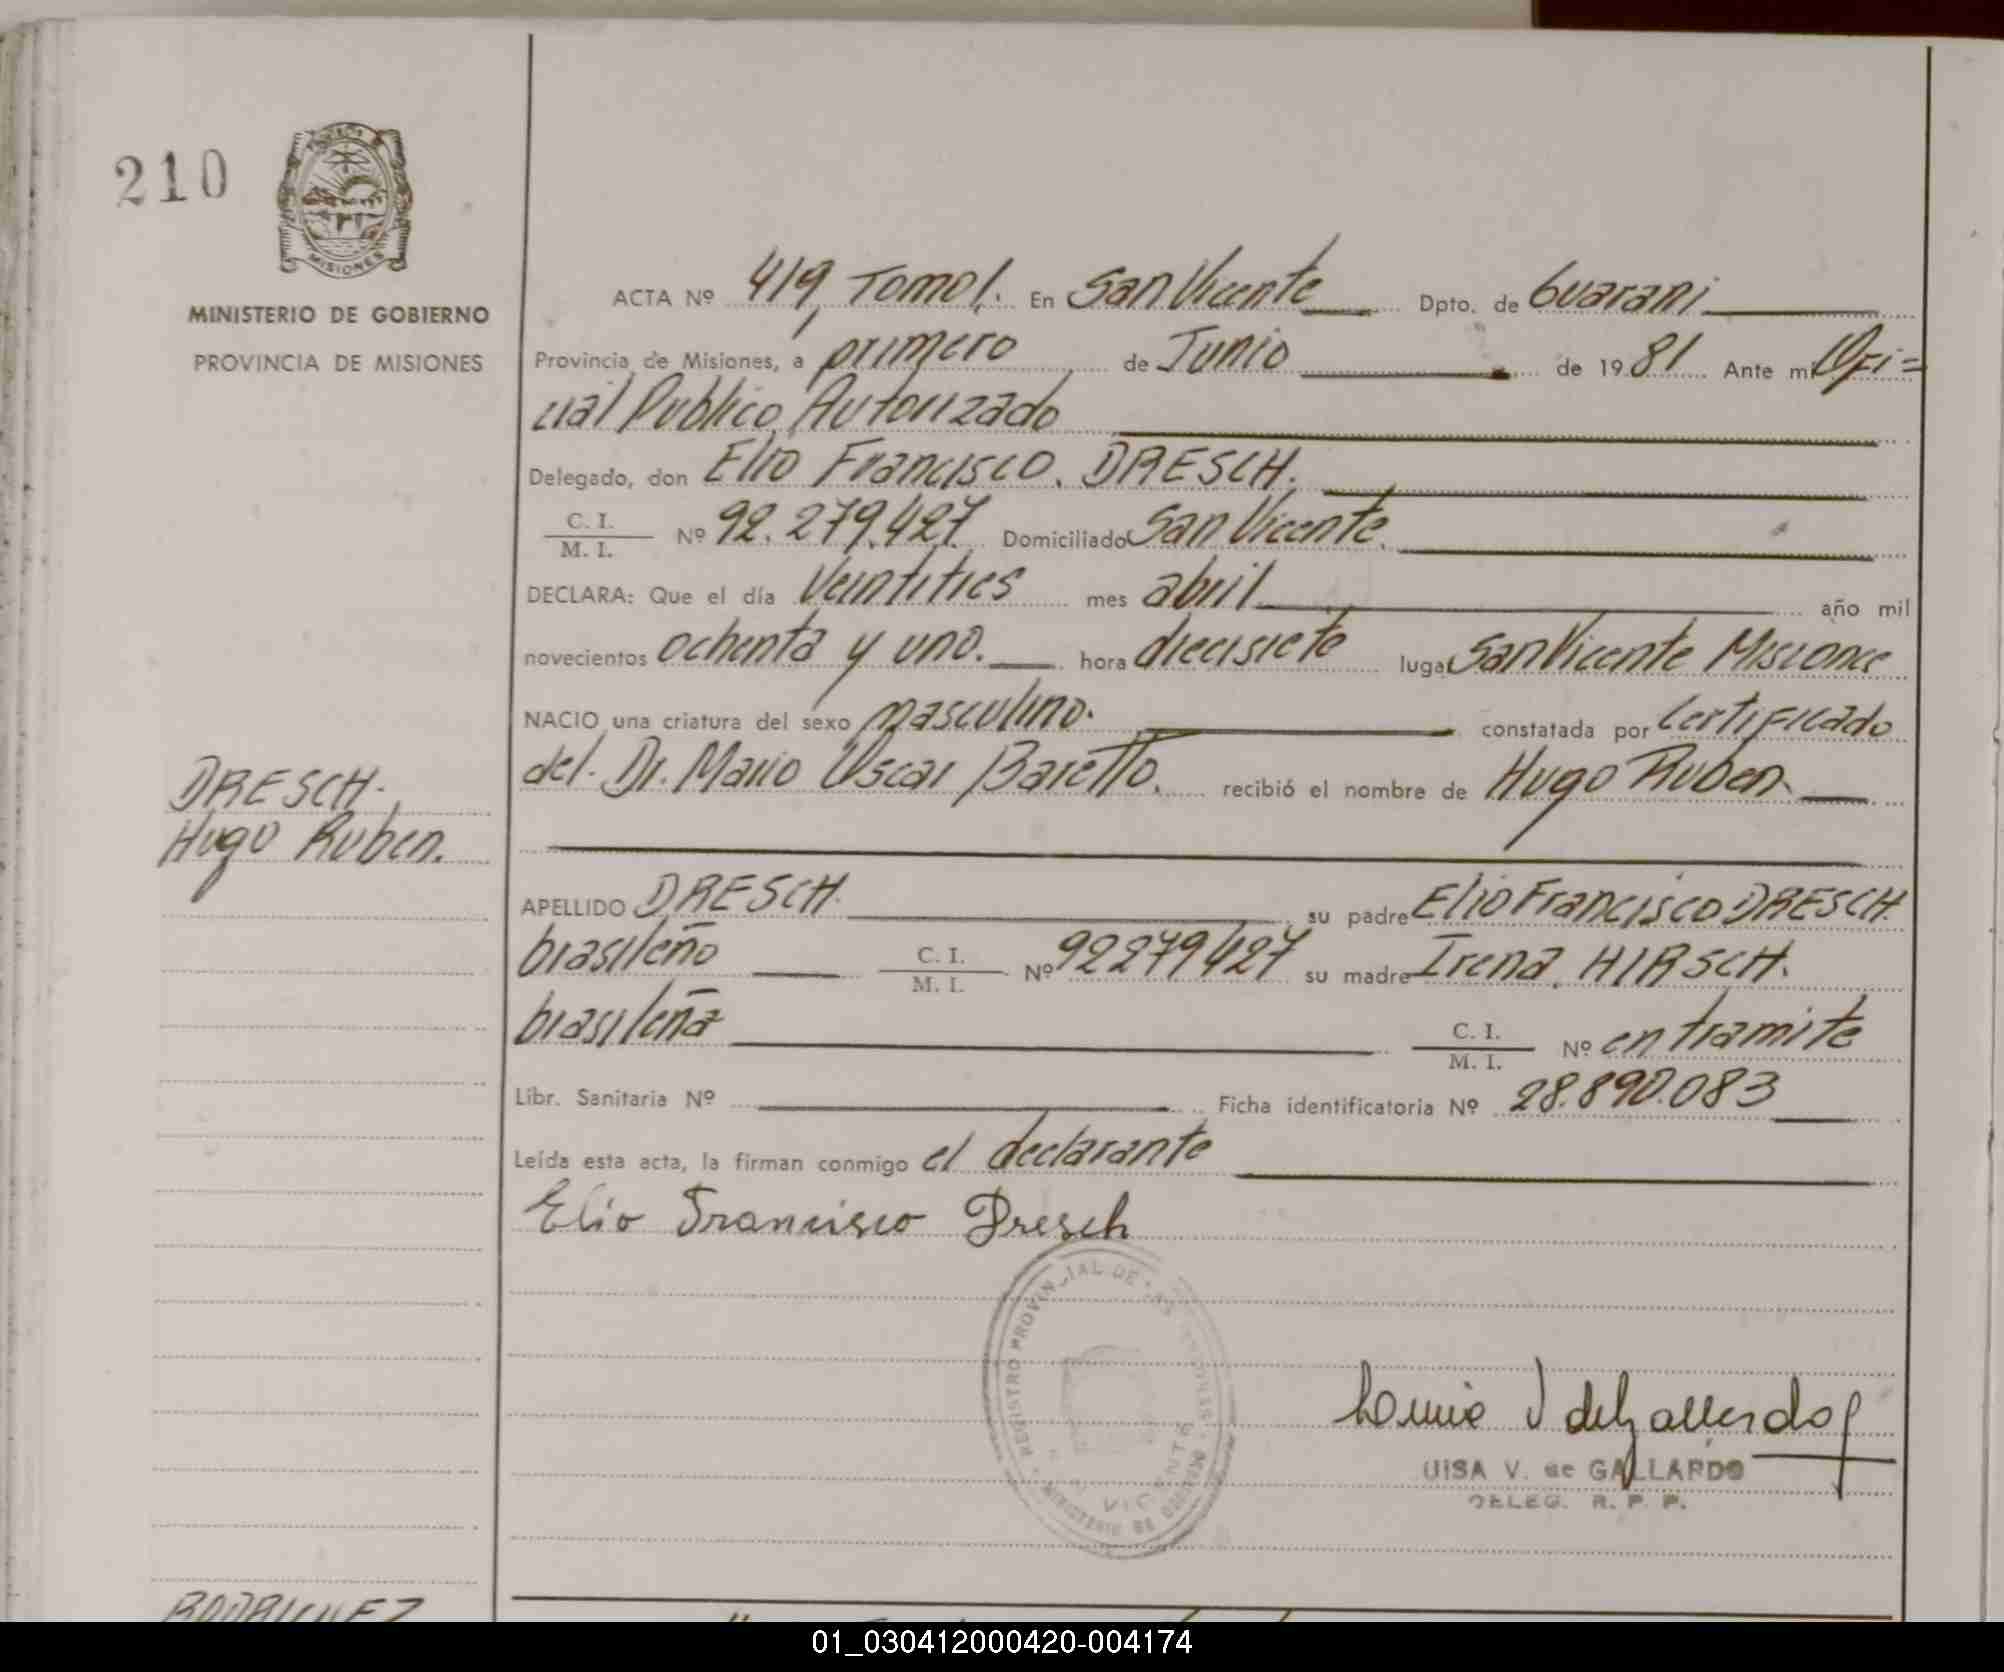 210
MISIONES
MINISTERIO DE GOBIERNO
PROVINCIA DE MISIONES
ACTA Nº 419, Tomo I. En San Vicente Dpto. de Guarani
Provincia de Misiones, a primero de Junio de 1981 Ante mi Ofi=
cial Publico Autorizado
Delegado, don Elio Francisco. DRESCH.
C. I.
M. I. Nº 92.279.427 Domiciliado San Vicente.
DECLARA: Que el día veintitres mes abril año mil
novecientos ochenta y uno. hora diecisiete lugar San Vicente Misiones
NACIO una criatura del sexo masculino. constatada por Certificado
del. Dr. Mario Oscar Baretto. recibió el nombre de Hugo Ruben.
DRESCH.
Hugo Ruben.
APELLIDO DRESCH. su padre Elio Francisco DRESCH.
brasileño C. I.
M. I. Nº 92279427 su madre Irena HIRSCH.
brasileña C. I.
M. I. Nº en tramite
Libr. Sanitaria Nº Ficha identificatoria Nº 28.890.083
Leída esta acta, la firman conmigo el declarante
Elio Francisco Dresch
REGISTRO PROVINCIAL DE LAS PERSONAS
VICENTE
MINISTERIO DE GOBIERNO
V de Gallardo
UISA V. de GALLARDO
DELEG. R. P. P.
RODRIGUEZ
01_030412000420-004174